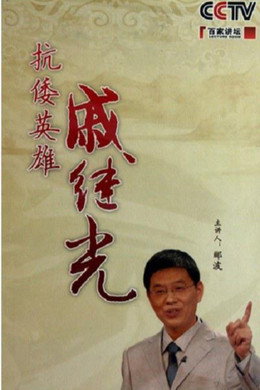 CCTV
百家讲坛
LECTURE ROOM
抗倭英雄
戚继光
主讲人:郦波